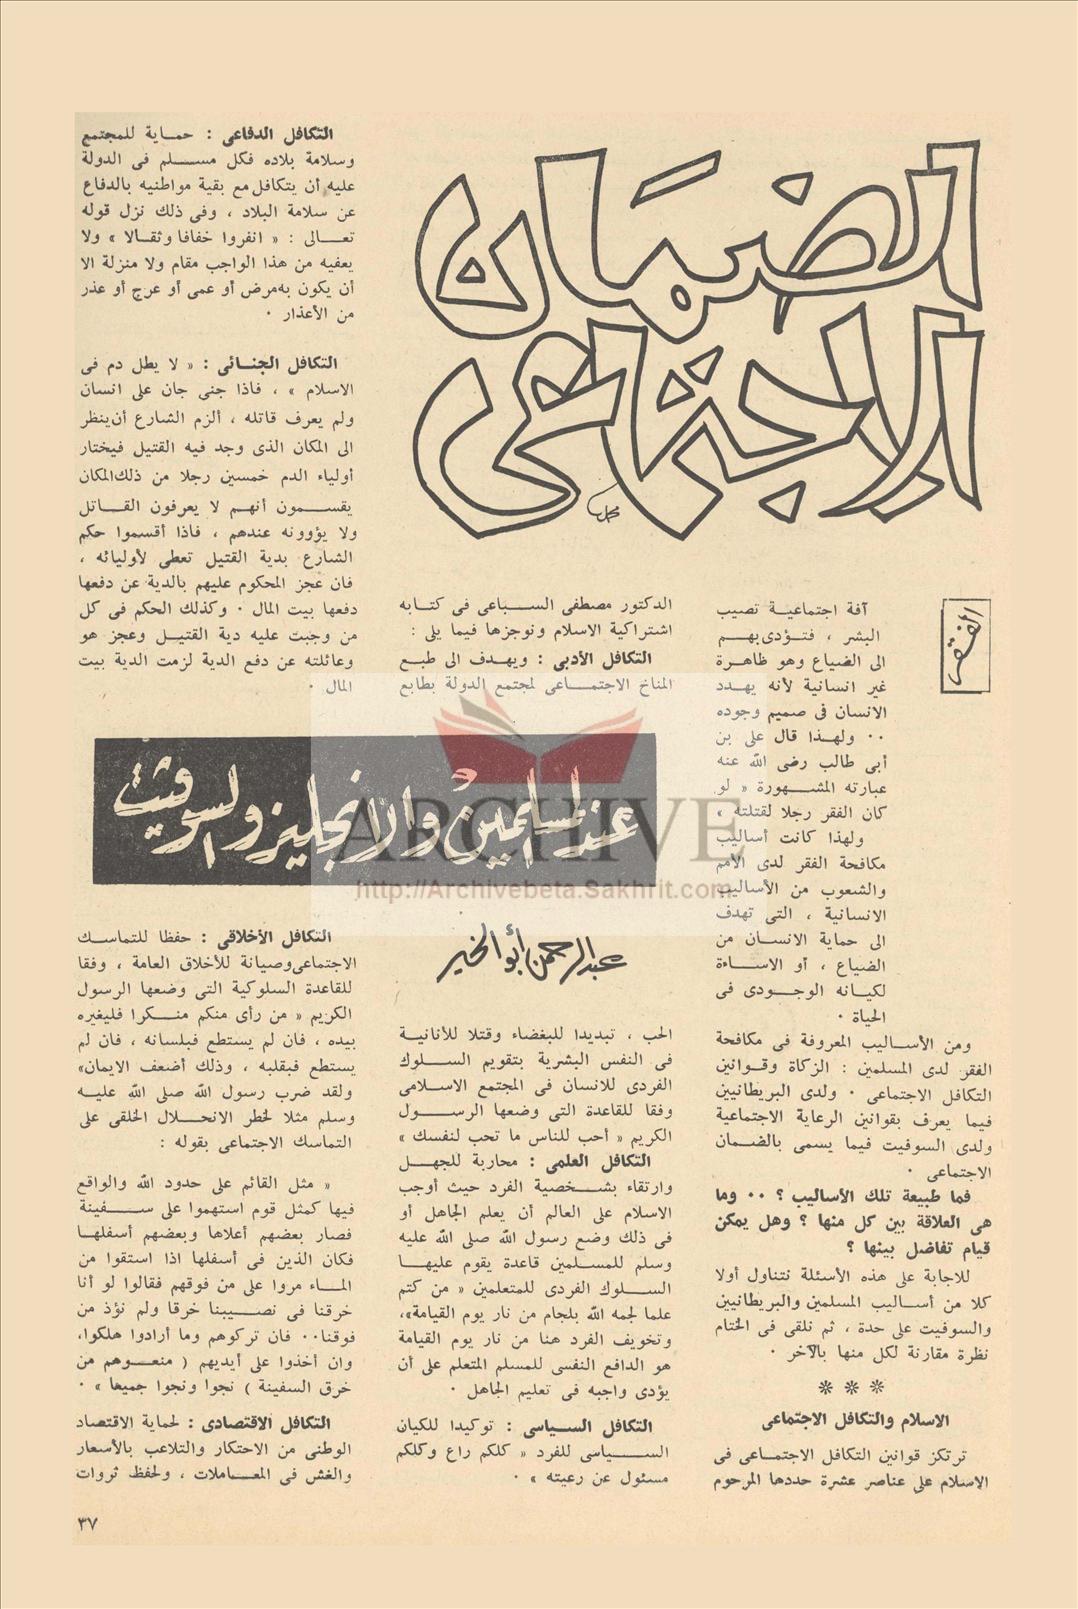 الضمان
الاجتماعى
محمد
الفقر
آفة اجتماعية تصيب
البشر ، فتؤدى بهم
الى الضياع وهو ظاهرة
غير انسانية لأنه يهدد
الانسان فى صميم وجوده
٠٠ ولهذا قال على بن
أبى طالب رضى الله عنه
عبارته المشهورة « لو
كان الفقر رجلا لقتلته »
ولهذا كانت أساليب
مكافحة الفقر لدى الأمم
والشعوب من الأساليب
الانسانية ، التى تهدف
الى حماية الانسان من
الضياع ، أو الاساءة
لكيانه الوجودى فى
الحياة ٠
ومن الأساليب المعروفة فى مكافحة
الفقر لدى المسلمين : الزكاة وقوانين
التكافل الاجتماعى ٠ ولدى البريطانيين
فيما يعرف بقوانين الرعاية الاجتماعية
ولدى السوفيت فيما يسمى بالضمان
الاجتماعى ٠
فما طبيعة تلك الأساليب ؟ ٠٠ وما
هى العلاقة بين كل منها ؟ وهل يمكن
قيام تفاضل بينها ؟
للاجابة على هذه الأسئلة نتناول أولا
كلا من أساليب المسلمين والبريطانيين
والسوفيت على حدة ، ثم نلقى فى الختام
نظرة مقارنة لكل منها بالآخر ٠
* * *
الاسلام والتكافل الاجتماعى
ترتكز قوانين التكافل الاجتماعى فى
الاسلام على عناصر عشرة حددها المرحوم
الدكتور مصطفى السباعى فى كتابه
اشتراكية الاسلام ونوجزها فيما يلى :
التكافل الأدبى : ويهدف الى طبع
المناخ الاجتماعى لمجتمع الدولة بطابع
عند المسلمين والانجليز والسوفيت
ARCHIVE
http://Archivebeta.Sakhrit.com
عبد الرحمن أبو الخير
الحب ، تبديدا للبغضاء وقتلا للأنانية
فى النفس البشرية بتقويم السلوك
الفردى للانسان فى المجتمع الاسلامى
وفقا للقاعدة التى وضعها الرسول
الكريم « أحب للناس ما تحب لنفسك »
التكافل العلمى : محاربة للجهل
وارتقاء بشخصية الفرد حيث أوجب
الاسلام على العالم أن يعلم الجاهل أو
فى ذلك وضع رسول الله صلى الله عليه
وسلم للمسلمين قاعدة يقوم عليها
السلوك الفردى للمتعلمين « من كتم
علما لجمه الله بلجام من نار يوم القيامة»،
وتخويف الفرد هنا من نار يوم القيامة
هو الدافع النفسى للمسلم المتعلم على أن
يؤدى واجبه فى تعليم الجاهل ٠
التكافل السياسى : توكيدا للكيان
السياسى للفرد « كلكم راع وكلكم
مسئول عن رعيته » ٠
التكافل الدفاعى : حماية للمجتمع
وسلامة بلاده فكل مسلم فى الدولة
عليه أن يتكافل مع بقية مواطنيه بالدفاع
عن سلامة البلاد ، وفى ذلك نزل قوله
تعالى : « انفروا خفافا وثقالا » ولا
يعفيه من هذا الواجب مقام ولا منزلة الا
أن يكون به مرض أو عمى أو عرج أو عذر
من الأعذار ٠
التكافل الجنائى : « لا يطل دم فى
الاسلام » ، فاذا جنى جان على انسان
ولم يعرف قاتله ، ألزم الشارع أن ينظر
الى المكان الذى وجد فيه القتيل فيختار
أولياء الدم خمسين رجلا من ذلك المكان
يقسمون أنهم لا يعرفون القاتل
ولا يؤوونه عندهم ، فاذا أقسموا حكم
الشارع بدية القتيل تعطى لأوليائه ،
فان عجز المحكوم عليهم بالدية عن دفعها
دفعها بيت المال ٠ وكذلك الحكم فى كل
من وجبت عليه دية القتيل وعجز هو
وعائلته عن دفع الدية لزمت الدية بيت
المال ٠
التكافل الأخلاقى : حفظا للتماسك
الاجتماعى وصيانة للأخلاق العامة ، وفقا
للقاعدة السلوكية التى وضعها الرسول
الكريم « من رأى منكم منكرا فليغيره
بيده ، فان لم يستطع فبلسانه ، فان لم
يستطع فبقلبه ، وذلك أضعف الايمان»
ولقد ضرب رسول الله صلى الله عليه
وسلم مثلا لخطر الانحلال الخلقى على
التماسك الاجتماعى بقوله :
« مثل القائم على حدود الله والواقع
فيها كمثل قوم استهموا على سفينة
فصار بعضهم أعلاها وبعضهم أسفلها
فكان الذين فى أسفلها اذا استقوا من
الماء مروا على من فوقهم فقالوا لو أنا
خرقنا فى نصيبنا خرقا ولم نؤذ من
فوقنا٠٠ فان تركوهم وما أرادوا هلكوا،
وان أخذوا على أيديهم ( منعوهم من
خرق السفينة ) نجوا ونجوا جميعا » ٠
التكافل الاقتصادى : لحماية الاقتصاد
الوطنى من الاحتكار والتلاعب بالأسعار
والغش فى المعاملات ، ولحفظ ثروات
٣٧